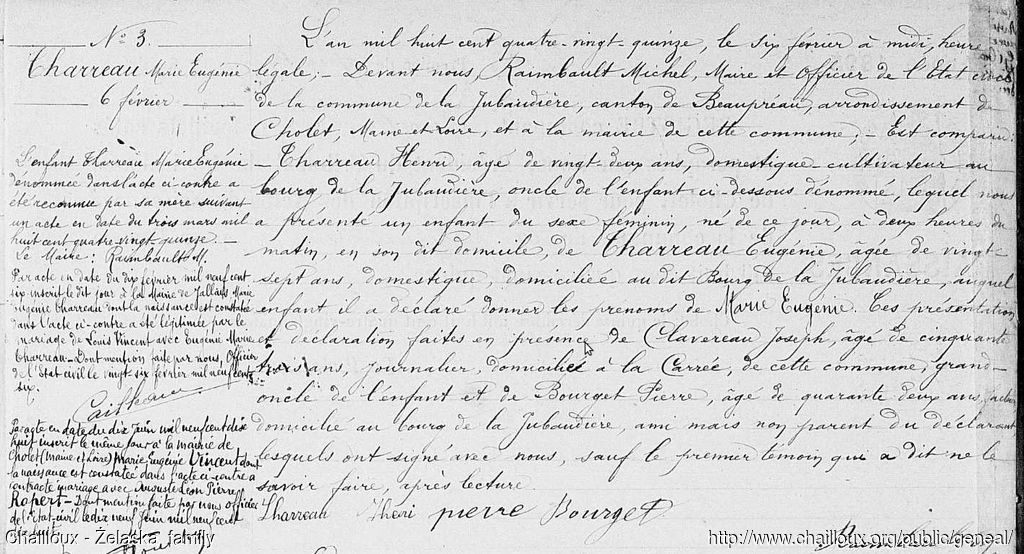 N° 3.
Charreau Marie Eugénie
6 février
L'enfant Charreau Marie Eugénie
dénommée dans l'acte ci-contre a
été reconnue par sa mère suivant
un acte en date du trois mars mil
huit cent quatre-vingt-quinze. —
Le Maire : Raimbault M.
Par acte en date du dix février mil neuf cent
six inscrit le dit jour à la Mairie de Jallais Marie
Eugénie Charreau dont la naissance est constatée
dans l'acte ci-contre a été légitimée par le
mariage de Louis Vincent avec Eugénie Marie
Charreau - Dont mention faite par nous, Officier
de l'Etat civil le vingt six février mil neuf cent
six.
Par acte en date du dix Juin mil neuf cent dix
huit inscrit le même jour à la mairie de
Cholet (Maine et Loire) Marie Eugénie Vincent dont
la naissance est constatée dans l'acte ci-contre a
contracté mariage avec Auguste Léon Pierre
Ropert - Dont mention faite par nous officier
de l'Etat-civil le dix neuf Juin mil neuf cent
dix huit.
L'an mil huit cent quatre-vingt-quinze, le six février à midi, heure
légale ; - Devant nous, Raimbault Michel, Maire et Officier de l'Etat civil
de la commune de la Jubaudière, canton de Beaupréau, arrondissement de
Cholet, Maine et Loire, et à la mairie de cette commune ; - Est comparu :
- Charreau Henri, âgé de vingt-deux ans, domestique-cultivateur au
bourg de la Jubaudière, oncle de l'enfant ci-dessous dénommé, lequel nous
a présenté un enfant du sexe féminin, né de ce jour, à deux heures du
matin, en son dit domicile, de Charreau Eugénie, âgée de vingt-
sept ans, domestique, domiciliée au dit Bourg de la Jubaudière, auquel
enfant il a déclaré donner les prénoms de Marie Eugénie. Ces présentation
et déclaration faites en présence de Clavereau Joseph, âgé de cinquante
trois ans, journalier, domicilié à la Carrée, de cette commune, grand-
oncle de l'enfant et de Bourget Pierre, âgé de quarante deux ans,
domicilié au bourg de la Jubaudière, ami mais non parent du déclarant
lesquels ont signé avec nous, sauf le premier témoin qui a dit ne le
savoir faire, après lecture.
Charreau Henri pierre Bourget
Chailloux - Zelaska family
http://www.chailloux.org/public/geneal/